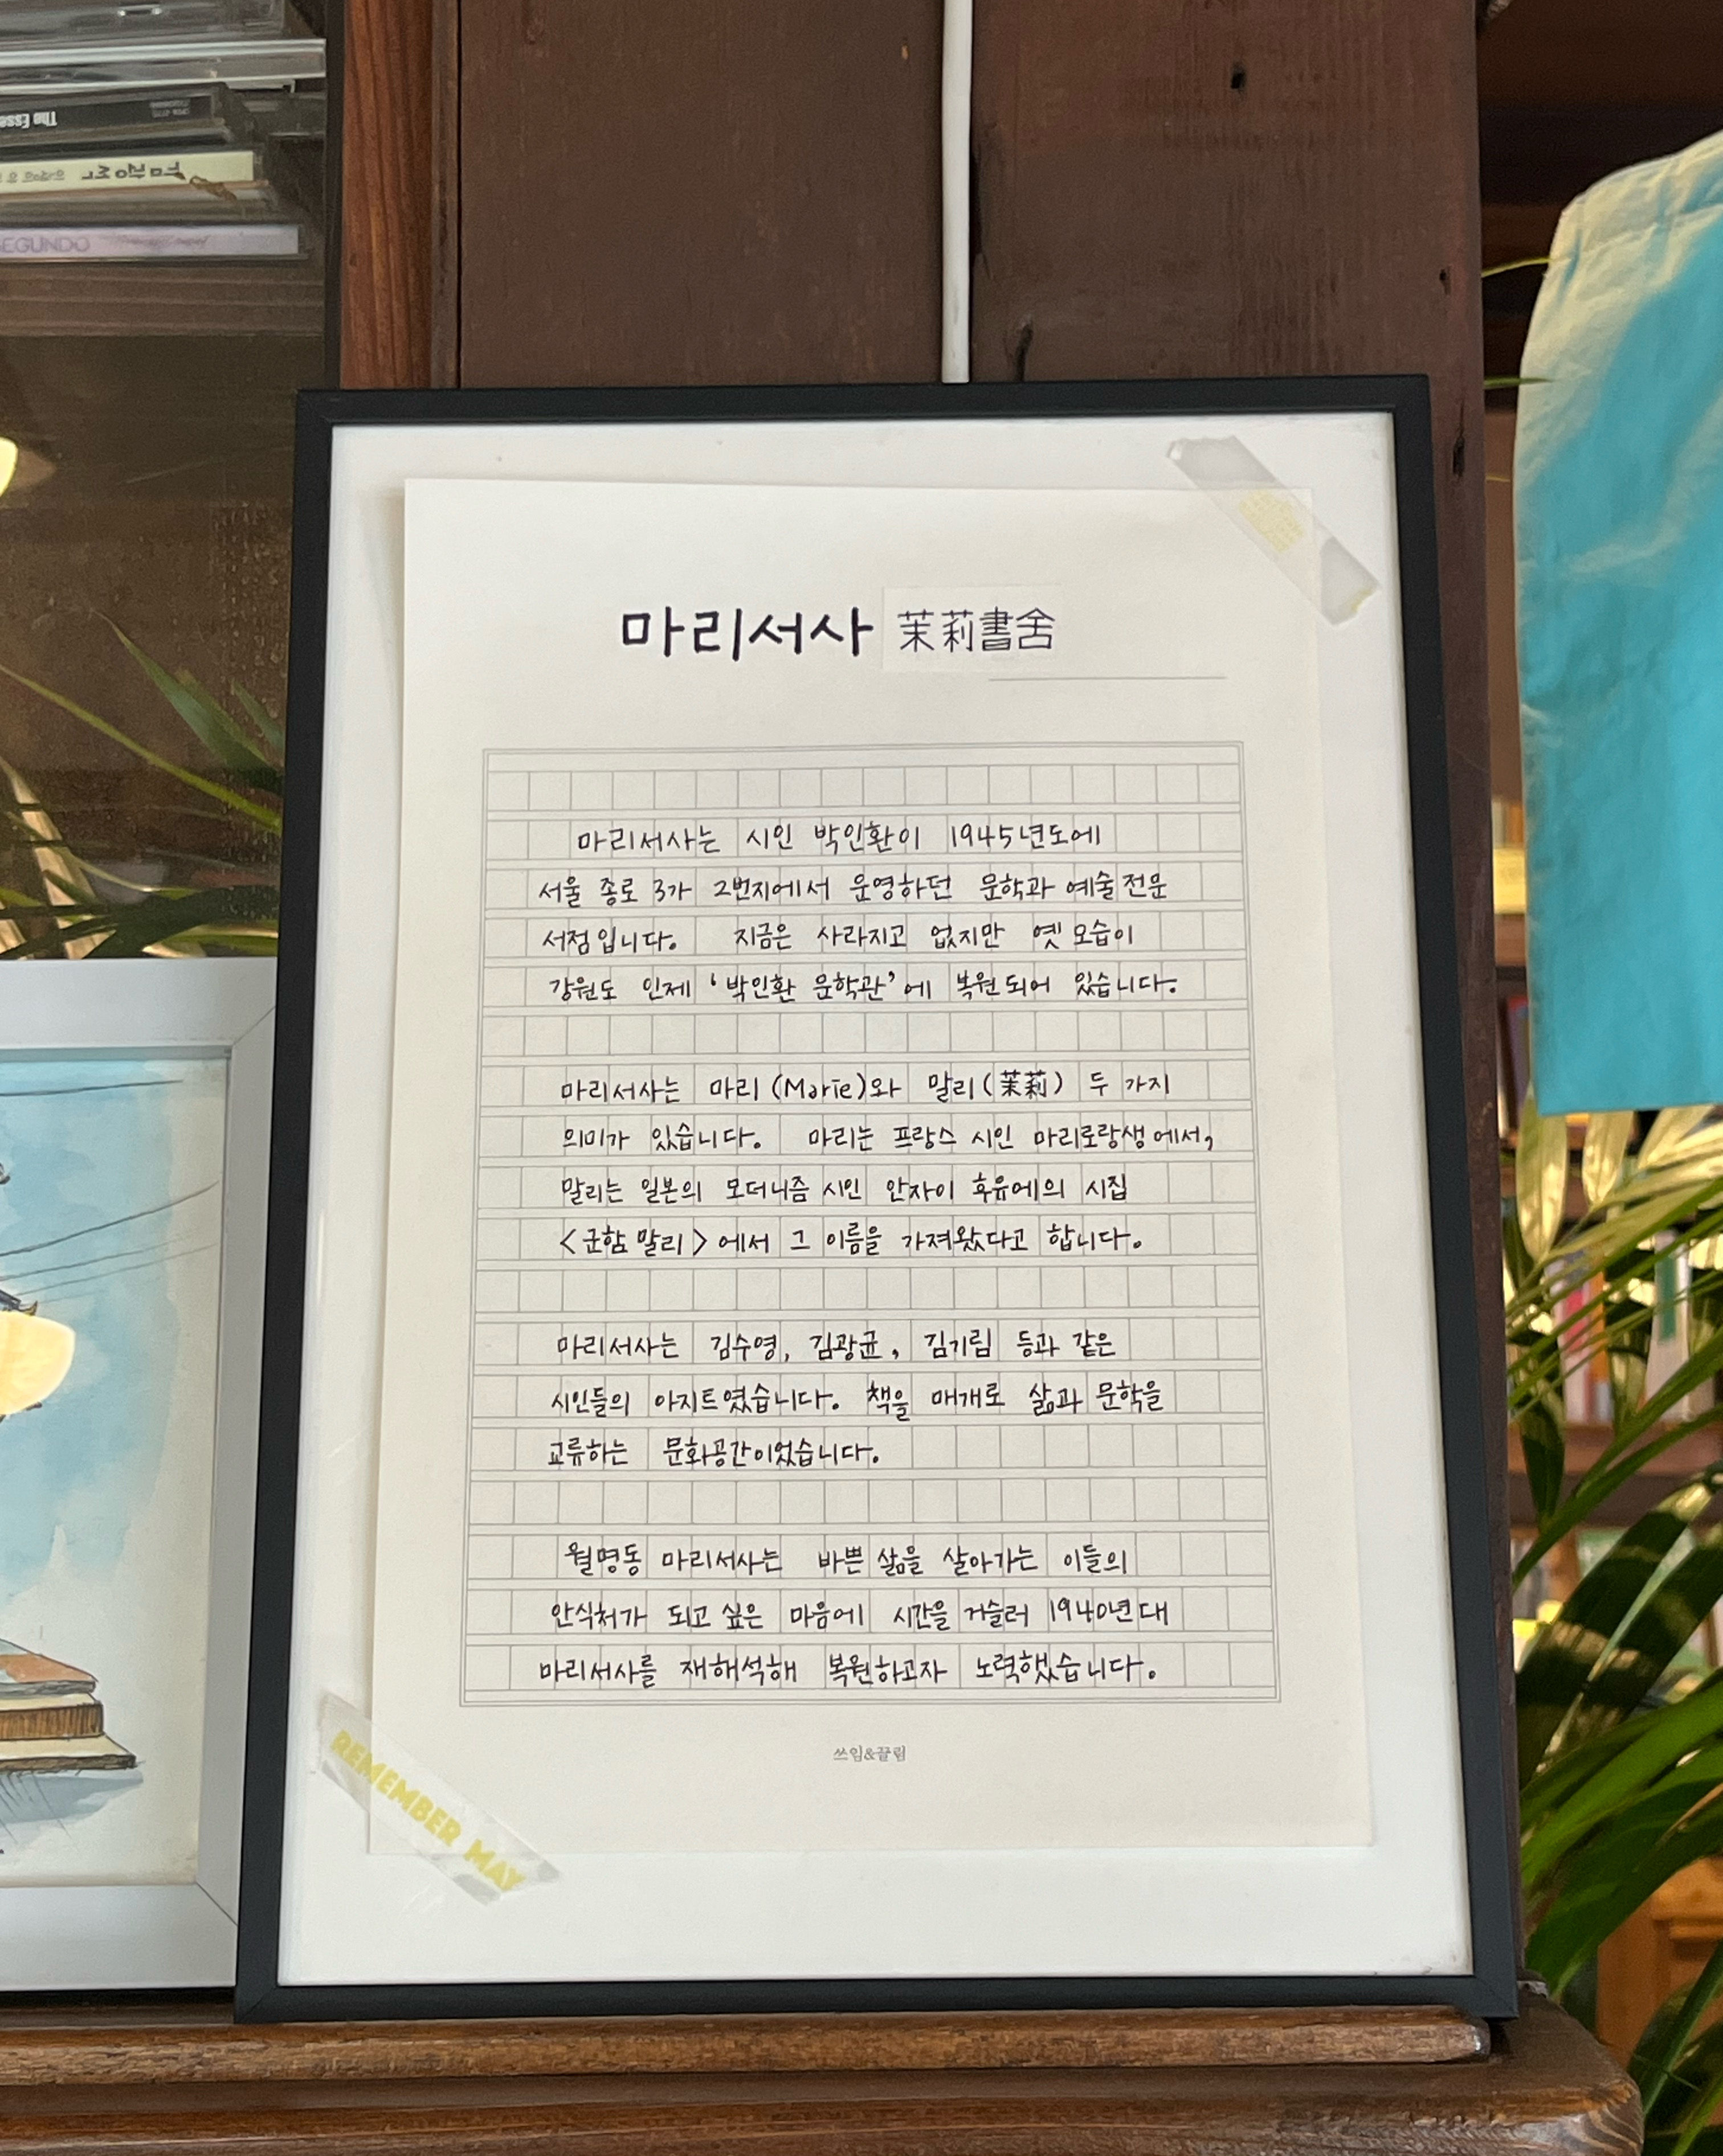 The Esse
SEGUNDO
마리서사 茉莉書舍
마리서사는 시인 박인환이 1945년도에
서울 종로 3가 2번지에서 운영하던 문학과 예술 전문
서점입니다. 지금은 사라지고 없지만 옛 모습이
강원도 인제 ‘박인환 문학관’에 복원되어 있습니다.
마리서사는 마리(Marie)와 말리(茉莉) 두 가지
의미가 있습니다. 마리는 프랑스 시인 마리로랑생에서,
말리는 일본의 모더니즘 시인 안자이 후유에의 시집
<군함 말리>에서 그 이름을 가져왔다고 합니다.
마리서사는 김수영, 김광균, 김기림 등과 같은
시인들의 아지트였습니다. 책을 매개로 삶과 문학을
교류하는 문화공간이었습니다.
월명동 마리서사는 바쁜 삶을 살아가는 이들의
안식처가 되고 싶은 마음에 시간을 거슬러 1940년대
마리서사를 재해석해 복원하고자 노력했습니다.
쓰임&끌림
REMEMBER MAY